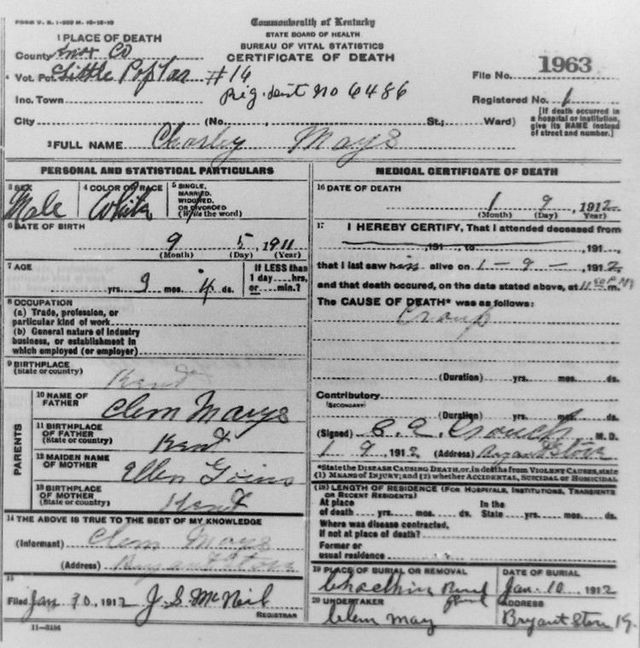 FORM V. S. 1-
Commonwealth of Kentucky
STATE BOARD OF HEALTH
BUREAU OF VITAL STATISTICS
CERTIFICATE OF DEATH
1 PLACE OF DEATH
County Knox Co
Vot. Pct Little Poplar #16
Inc. Town
Rig. dist No 6486
City (No. St.; Ward)
File No. 1963
Registered No. 1
[If death occurred in
a hospital or institution,
give its NAME instead
of street and number.]
2 FULL NAME Charley Mays
PERSONAL AND STATISTICAL PARTICULARS
3 SEX Male
4 COLOR OR RACE White
5 SINGLE,
MARRIED,
WIDOWED,
OR DIVORCED
(Write the word)
6 DATE OF BIRTH
9 5 1911
(Month) (Day) (Year)
7 AGE
yrs. 3 mos. 4 ds.
If LESS than
1 day....hrs,
or.....min.?
8 OCCUPATION
(a) Trade, profession, or
particular kind of work
(b) General nature of industry
business, or establishment in
which employed (or employer)
9 BIRTHPLACE
(State or country) Kent
PARENTS
10 NAME OF
FATHER Clem Mays
11 BIRTHPLACE
OF FATHER
(State or country) Kent
12 MAIDEN NAME
OF MOTHER Ellen Goins
13 BIRTHPLACE
OF MOTHER
(State or country) Kent
14 THE ABOVE IS TRUE TO THE BEST OF MY KNOWLEDGE
(Informant) Clem Mays
(Address) Bryant Store
15
Filed Jan 30, 1912 J. S. McNeil
REGISTRAR
11-3184
MEDICAL CERTIFICATE OF DEATH
16 DATE OF DEATH
1 9, 1912
(Month) (Day) Year)
17 I HEREBY CERTIFY, That I attended deceased from
, 191 , to , 191
that I last saw him alive on 1-9-, 1912
and that death occured, on the data stated above, at 11 P M
The CAUSE OF DEATH* was as follows:
Croup
(Duration) yrs. mos. ds.
Contributory
(SECONDARY)
(Duration) yrs. mos. ds.
(Signed) Crouch M. D.
1 9 1912 (Address) Bryant Store
*State the DISEASE CAUSING DEATH, or, in deaths from VIOLENT CAUSES, state
(1) MEANS OF INJURY; and (2) whether ACCIDENTAL, SUICIDAL or HOMICIDAL
18 LENGTH OF RESIDENCE (FOR HOSPITALS, INSTITUTIONS, TRANSIENTS
OR RECENT RESIDENTS)
At place In the
of death yrs. mos. ds. State yrs. mos. ds.
Where was disease contracted,
if not at place of death?
Former or
usual residence
19 PLACE OF BURIAL OR REMOVAL
DATE OF BURIAL
Jan. 10, 1912
20 UNDERTAKER
Clem May
ADDRESS
Bryant Store Ky.